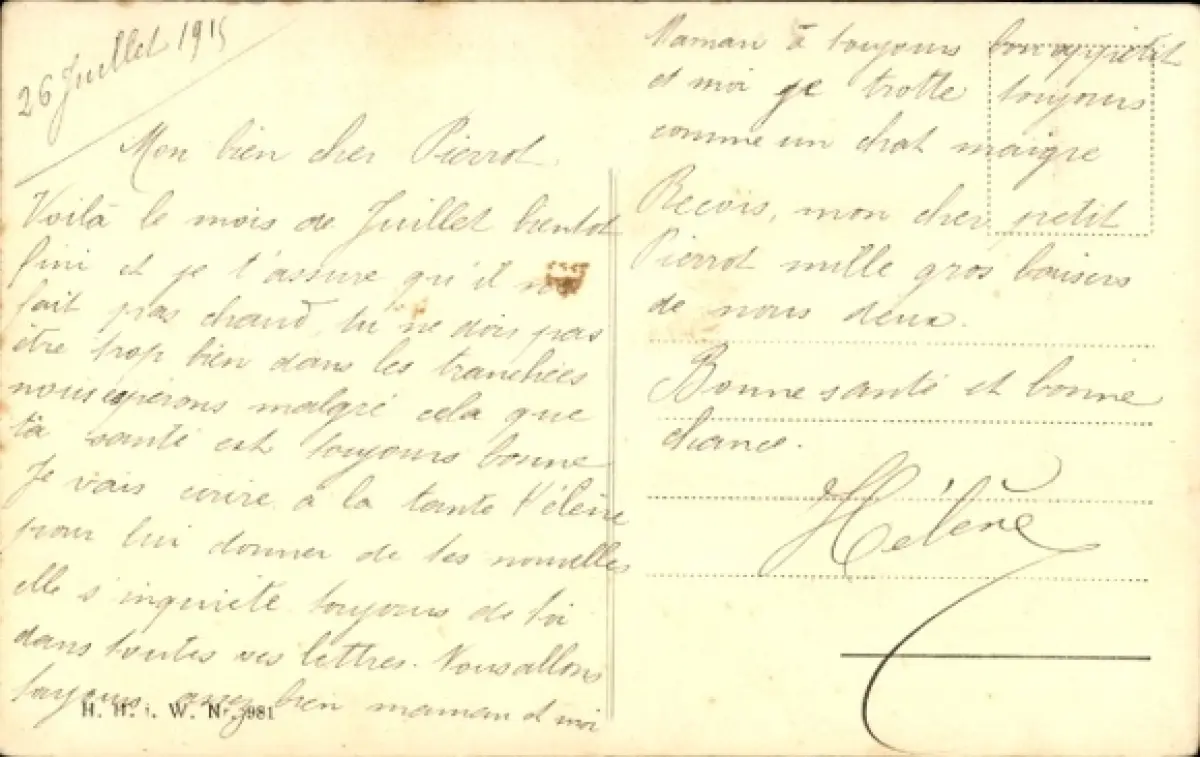 26 Juillet 1915
Mon bien cher Pierrot
Voilà le mois de Juillet bientot
fini et je t'assure qu'il ne
fait pas chaud, tu ne dois pas
être trop bien dans les tranchées
nous espérons malgré cela que
ta santé est toujours bonne
Je vais écrire à la tante Hélène
pour lui donner de tes nouvelles
elle s'inquiète toujours de toi
dans toutes ses lettres. Nous allons
toujours assez bien maman et moi
H. H. i. W. Nr. 981
Maman à toujours bon appétit
et moi je trotte toujours
comme un chat maigre
Recois, mon cher petit
Pierrot mille gros baisers
de nous deux.
Bonne santé et bonne
chance.
Hélène